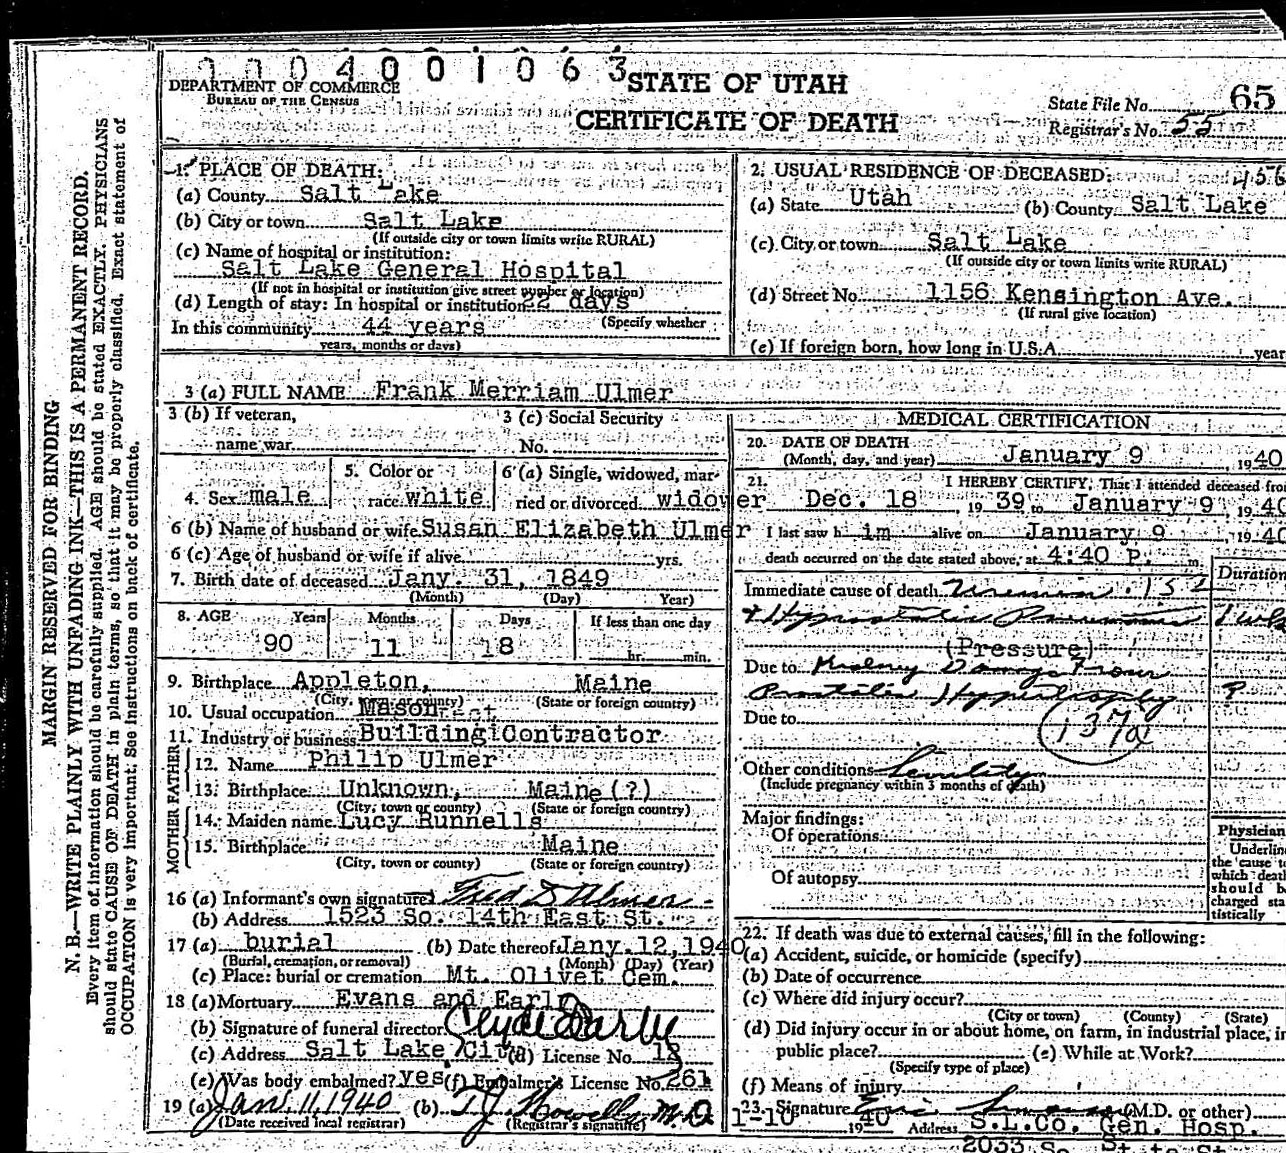 0004001063
DEPARTMENT OF COMMERCE
BUREAU OF THE CENSUS
STATE OF UTAH
CERTIFICATE OF DEATH
State File No. 65
Registrar's No. 55
1. PLACE OF DEATH:
(a) County Salt Lake
(b) City or town Salt Lake
(If outside city or town limits write RURAL)
(c) Name of hospital or institution:
Salt Lake General Hospital
(If not in hospital or institution give street number or location)
(d) Length of stay: In hospital or institution 22 days
(Specify whether
In this community 44 years
years, months or days)
2. USUAL RESIDENCE OF DECEASED:
(a) State Utah (b) County Salt Lake
(c) City or town Salt Lake
(If outside city or town limits write RURAL)
(d) Street No. 1156 Kensington Ave.
(If rural give location)
(e) If foreign born, how long in U.S.A. year
3 (a) FULL NAME Frank Merriam Ulmer
3 (b) If veteran,
name war
3 (c) Social Security
No.
4. Sex male
5. Color or
race white
6 (a) Single, widowed, mar-
ried or divorced widower
6 (b) Name of husband or wife Susan Elizabeth Ulmer
6 (c) Age of husband or wife if alive yrs.
7. Birth date of deceased Jany. 31, 1849
(Month) (Day) Year)
8. AGE Years Months Days If less than one day
90 11 18 hr. min.
9. Birthplace Appleton, Maine
(City, town or county) (State or foreign country)
10. Usual occupation Mason
11. Industry or business Building Contractor
FATHER
12. Name Philip Ulmer
13. Birthplace Unknown, Maine (?)
(City, town or county) (State or foreign country)
MOTHER
14. Maiden name Lucy Runnells
15. Birthplace Maine
(City, town or county) (State or foreign country)
16 (a) Informant's own signature Fred D Ulmer
(b) Address 1523 So. 14th East St.
17 (a) burial (b) Date thereof Jany. 12, 1940
(Burial, cremation, or removal) (Month) (Day) (Year)
(c) Place: burial or cremation Mt. Olivet Cem.
18 (a) Mortuary Evans and Early
(b) Signature of funeral director Clyde Early
(c) Address Salt Lake City (d) License No. 13
(e) Was body embalmed? yes (f) Embalmer's License No. 261
19 (a) Jan. 11, 1940 (b) T J Howells, M.D
(Date received local registrar) (Registrar's signature)
MEDICAL CERTIFICATION
20. DATE OF DEATH
(Month, day, and year) January 9, 1940
21. I HEREBY CERTIFY, That I attended deceased from
Dec. 18, 1939 to January 9, 1940
I last saw him alive on January 9, 1940
death occurred on the date stated above, at 4:40 P. m.
Duration
Immediate cause of death Uremia 132
& Hypostatic Pneumonia 1 wk
(Pressure)
Due to Kidney Damage From
Prostatic Hypertrophy ?
Due to
137a
Other conditions Senility
(Include pregnancy within 3 months of death)
Major findings:
Of operations
Of autopsy
Physician
Underline
the cause to
which death
should be
charged sta-
tistically
22. If death was due to external causes, fill in the following:
(a) Accident, suicide, or homicide (specify)
(b) Date of occurrence
(c) Where did injury occur?
(City or town) (County) (State)
(d) Did injury occur in or about home, on farm, in industrial place, in
public place? (e) While at Work?
(Specify type of place)
(f) Means of injury
23. Signature (M.D. or other)
1-10 1940 Address S.L.Co. Gen. Hosp.
2033 So. State St
MARGIN RESERVED FOR BINDING
N. B.—WRITE PLAINLY WITH UNFADING INK—THIS IS A PERMANENT RECORD.
Every item of information should be carefully supplied. AGE should be stated EXACTLY. PHYSICIANS
should state CAUSE OF DEATH in plain terms, so that it may be properly classified. Exact statement of
OCCUPATION is very important. See instructions on back of certificate.